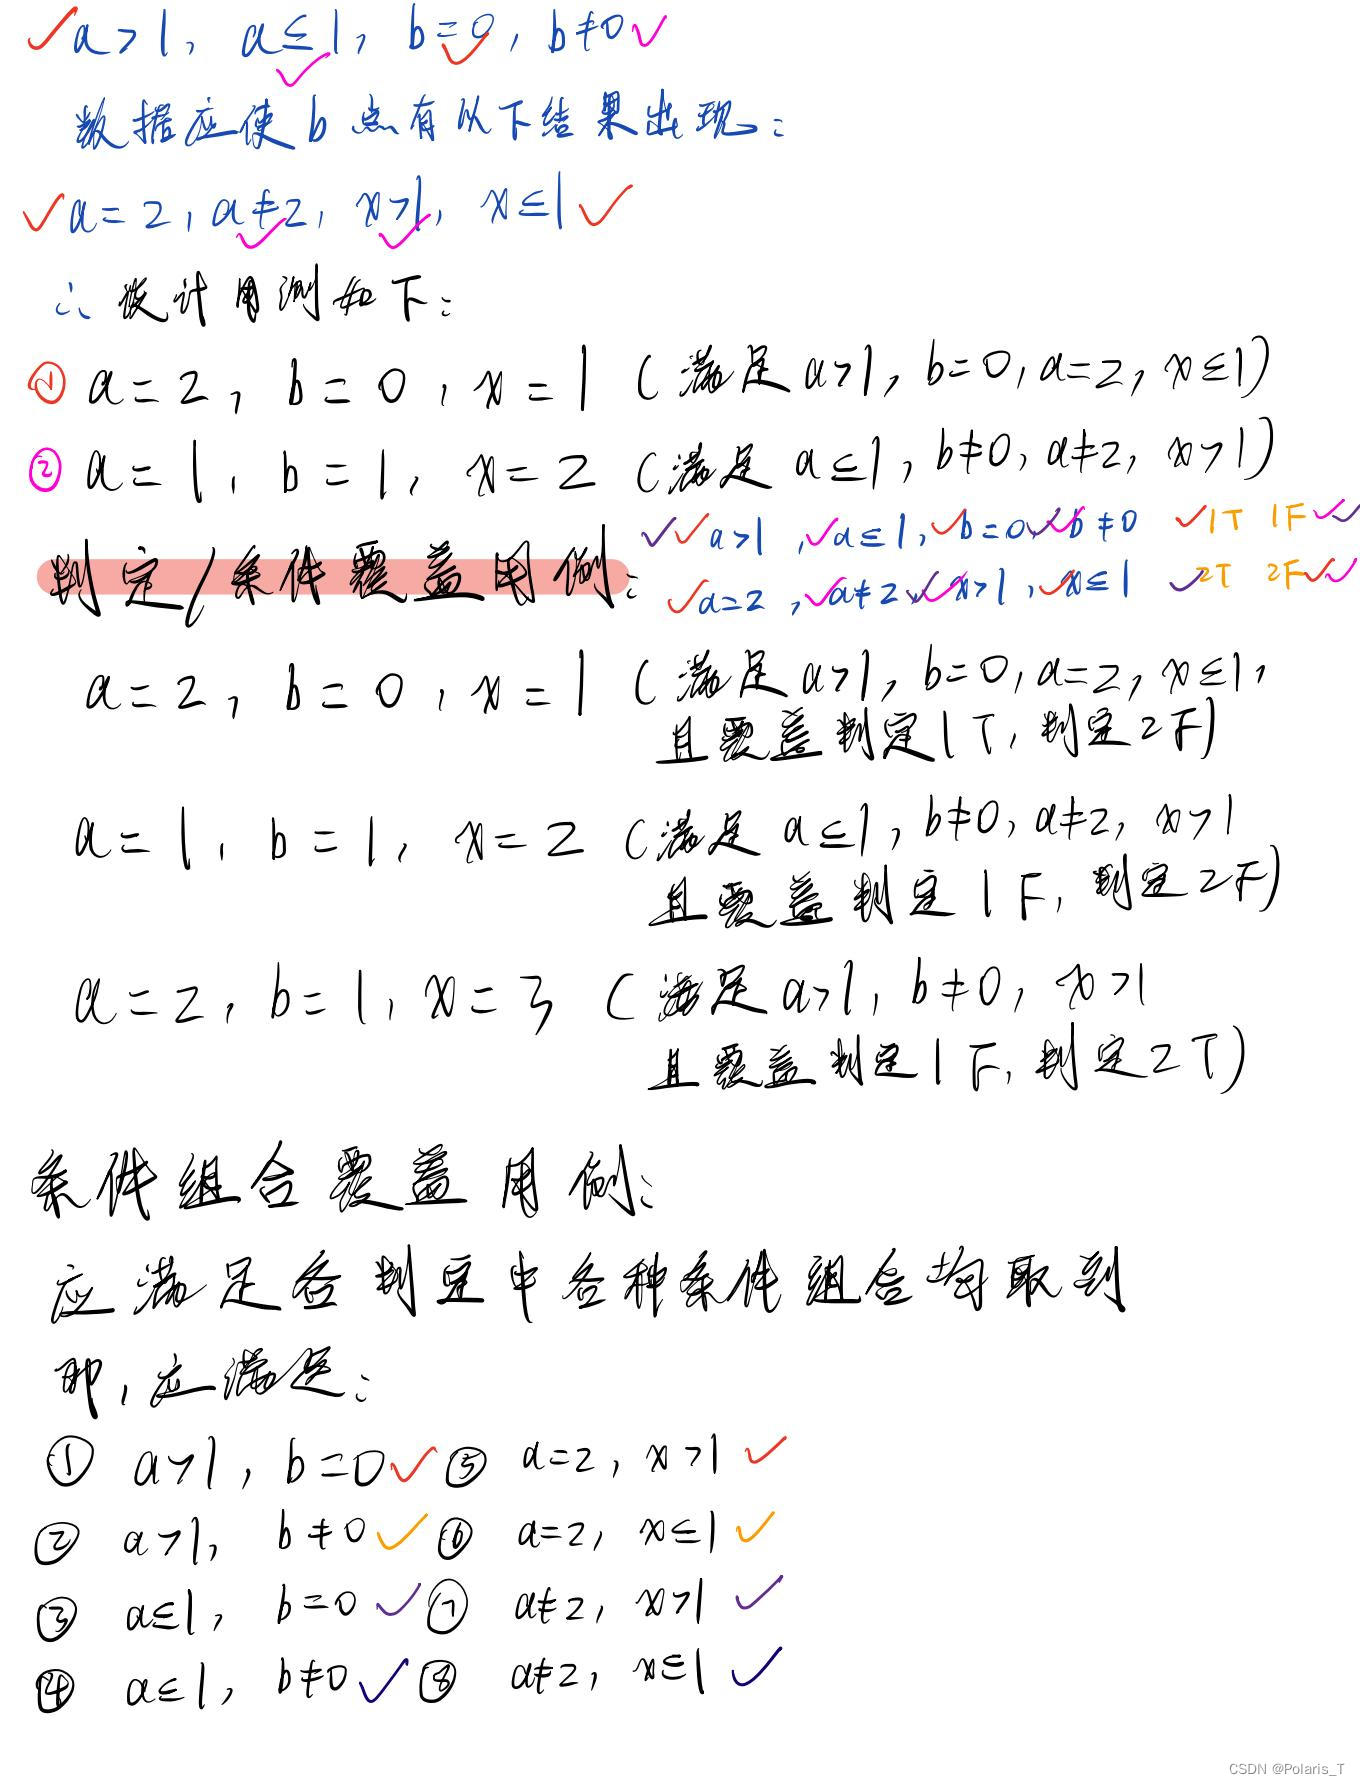 a>1, a≤1, b=0, b≠0
数据应使b点有以下结果出现:
a=2, a≠2, x>1, x≤1
∴ 设计用测如下:
① a=2, b=0, x=1 (满足a>1, b=0, a=2, x≤1)
② a=1, b=1, x=2 (满足a≤1, b≠0, a≠2, x>1)
a>1, a≤1, b=0, b≠0 1T 1F
判定/条件覆盖用例:
a=2, a≠2, x>1, x≤1 2T 2F
a=2, b=0, x=1 (满足a>1, b=0, a=2, x≤1,
且覆盖判定1T, 判定2F)
a=1, b=1, x=2 (满足a≤1, b≠0, a≠2, x>1
且覆盖判定1F, 判定2F)
a=2, b=1, x=3 (满足a>1, b≠0, x>1
且覆盖判定1F, 判定2T)
条件组合覆盖用例:
应满足各判定中各种条件组合均取到
即, 应满足:
① a>1, b=0 ⑤ a=2, x>1
② a>1, b≠0 ⑥ a=2, x≤1
③ a≤1, b=0 ⑦ a≠2, x>1
④ a≤1, b≠0 ⑧ a≠2, x≤1
CSDN @Polaris_T